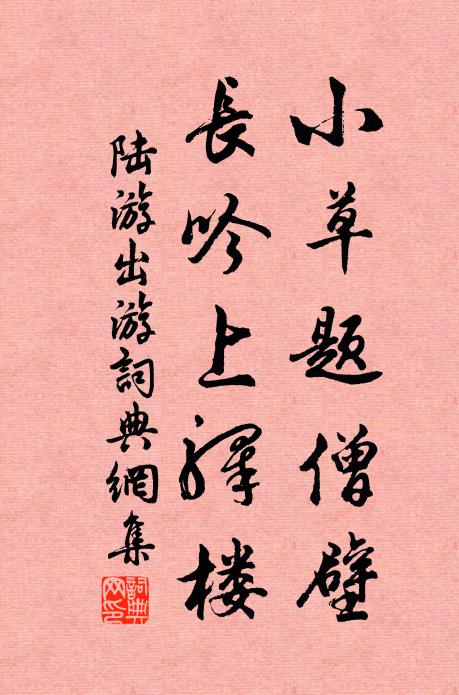 小草题僧壁
長吟上驛楼
陆游出游詞典網集
詞典网印